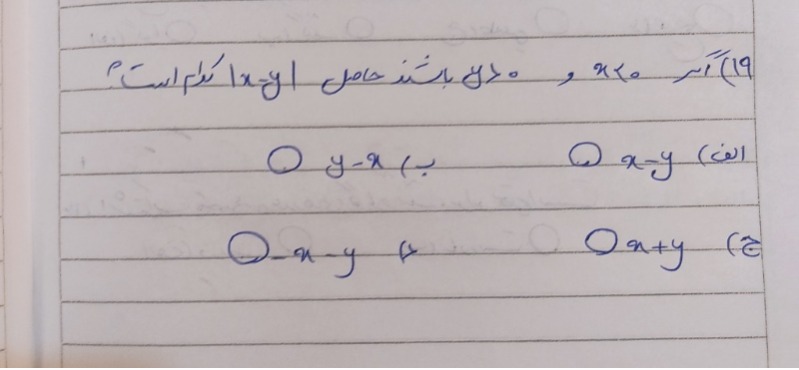 ۱۹) اگر x<0 و y>0 باشند حاصل |x-y| کدام است؟
الف) x-y ب) y-x
ج) x+y د) -x-y